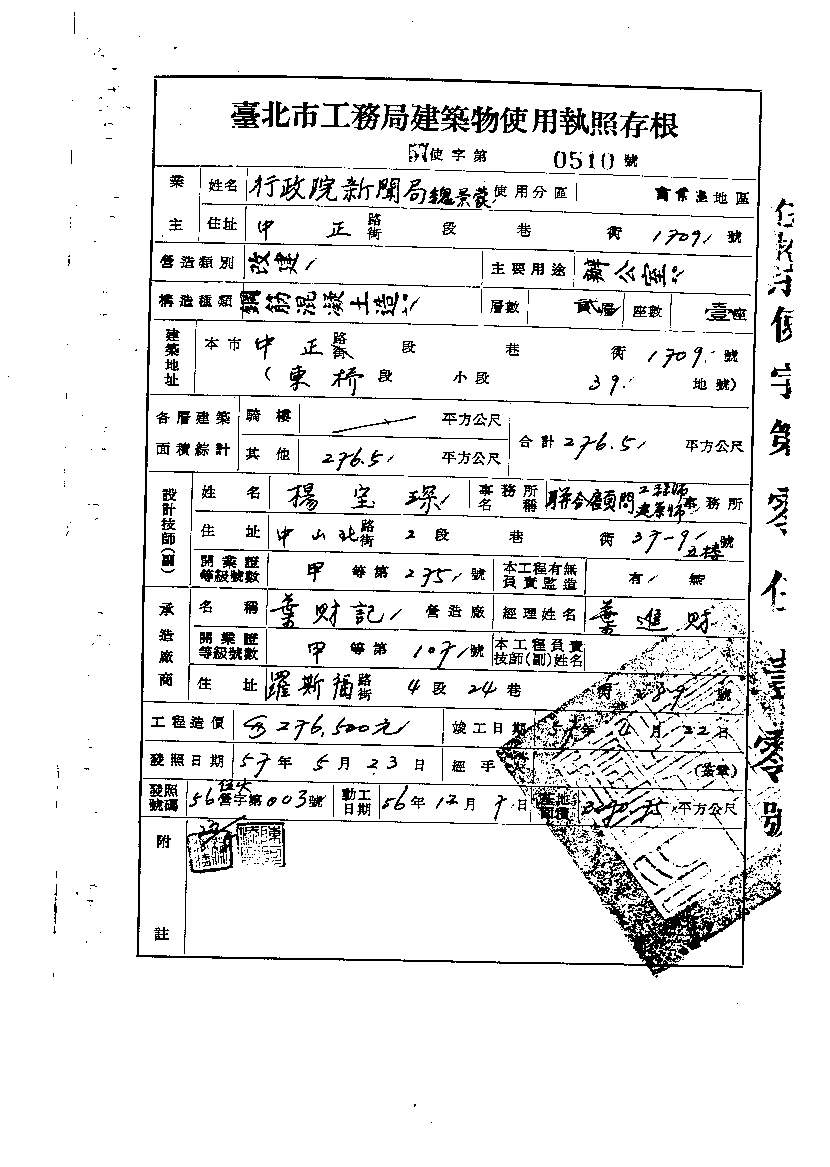 臺北市工務局建築物使用執照存根
57使字第 0510 號
業主 姓名 行政院新聞局 使用分區 地區
住址 中正路街 段 巷 街 1709 號
營造類別 改建 主要用途 辦公室
構造種類 鋼筋混凝土造 層數 貳層 座數 壹座
建築地址 本市 中正路街 段 巷 街 1709 號
(東橋段 小段 39 地號)
各層建築面積綜計 騎樓 平方公尺
其他 276.5 平方公尺 合計 276.5 平方公尺
設計技師(副) 姓名 楊 事務所名稱 聯合顧問 事務所
住址 中山北路街 2段 巷 街 號
開業證等級號數 甲等第 275 號 本工程有無負責監造 有 無
承造廠商 名稱 葉財記 營造廠 經理姓名 葉進財
開業證等級號數 甲等第 號 本工程負責技師(副)姓名
住址 羅斯福路街 4段 24巷 街 號
工程造價 276,500元 竣工日期 年 月 22日
發照日期 57年 5月 23日 經手 (簽章)
發照號碼 56 字第003號 動工日期 56年12月 日 基地面積 平方公尺
附註